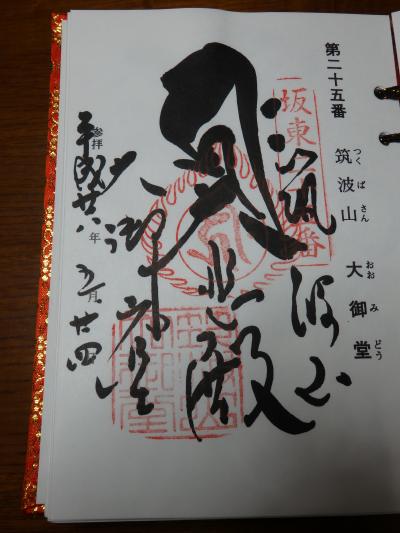 第二十五番
筑波山 大御堂
つくばさん おおみどう
坂東
番
筑波山
悲殿
大御堂
参拝
平成廿八年 月廿四